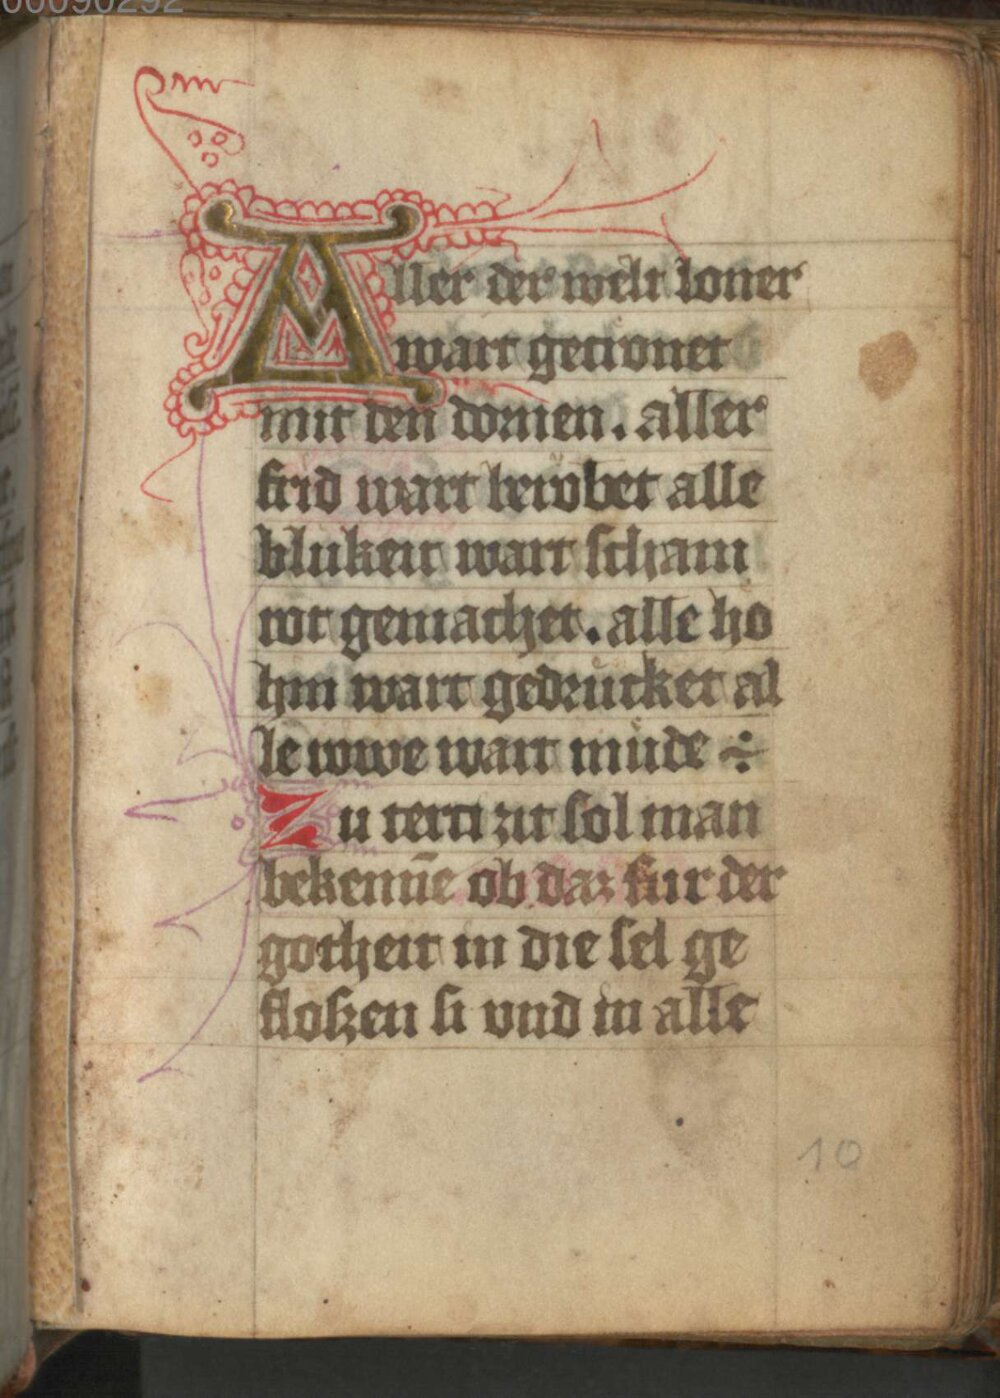 00090292
Aller der welt loner
wart gecronet
mit den dornen. aller
frid wart berobet alle
blukeit wart scham
rot gemachet. alle ho
hin wart gedrucket al
le rowe wart müde
Zu terci zit sol man
bekennē ob daz fur der
gotheit in die sel ge
floszen si vnd in alle
10